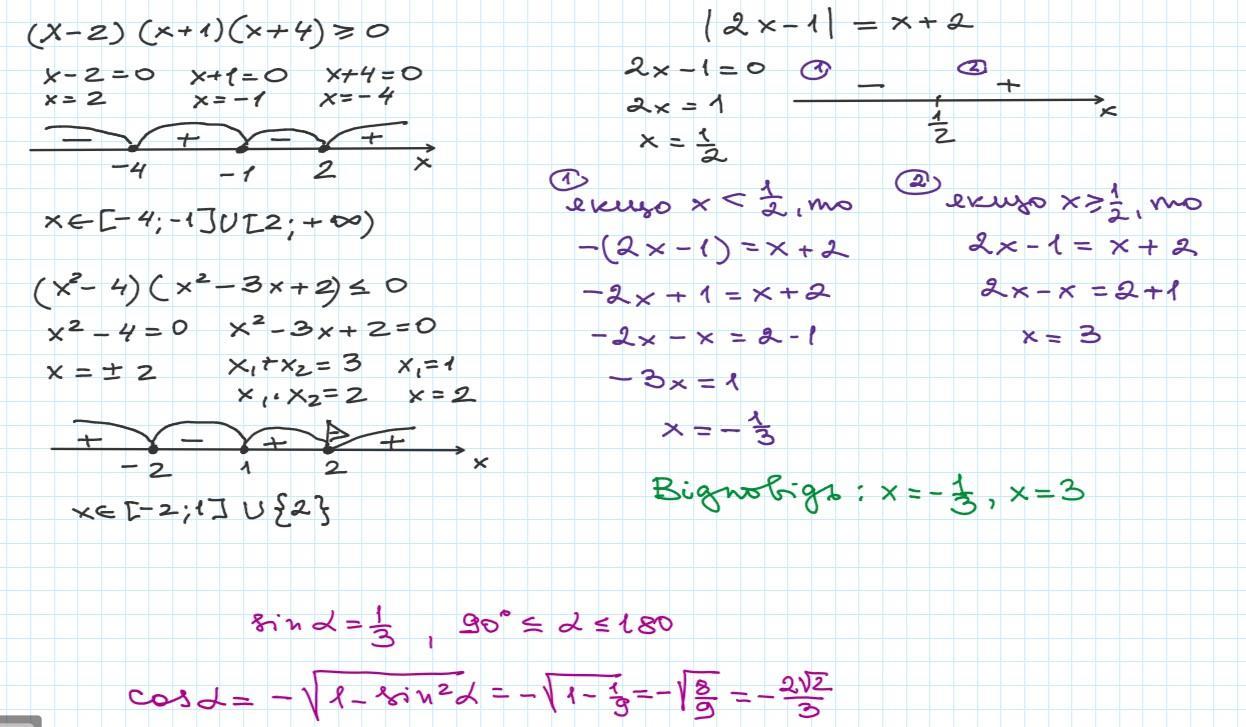 (x-2)(x+1)(x+4) ≥ 0
x-2=0 x+1=0 x+4=0
x=2 x=-1 x=-4
- + - +
-4 -1 2 x
x∈[-4;-1]∪[2;+∞)
(x²-4)(x²-3x+2) ≤ 0
x²-4=0 x²-3x+2=0
x=±2 x₁+x₂=3 x₁=1
x₁·x₂=2 x=2
+ - + +
-2 1 2 x
x∈[-2;1]∪{2}
|2x-1| = x+2
2x-1=0
2x=1
x=1/2
① - ② +
1/2 x
①
якщо x < 1/2, то
-(2x-1)=x+2
-2x+1=x+2
-2x-x=2-1
-3x=1
x=-1/3
②
якщо x≥1/2, то
2x-1=x+2
2x-x=2+1
x=3
Відповідь: x=-1/3, x=3
sin α = 1/3, 90° ≤ α ≤ 180
cos α = -√(1-sin²α) = -√(1-1/9) = -√(8/9) = -2√2/3